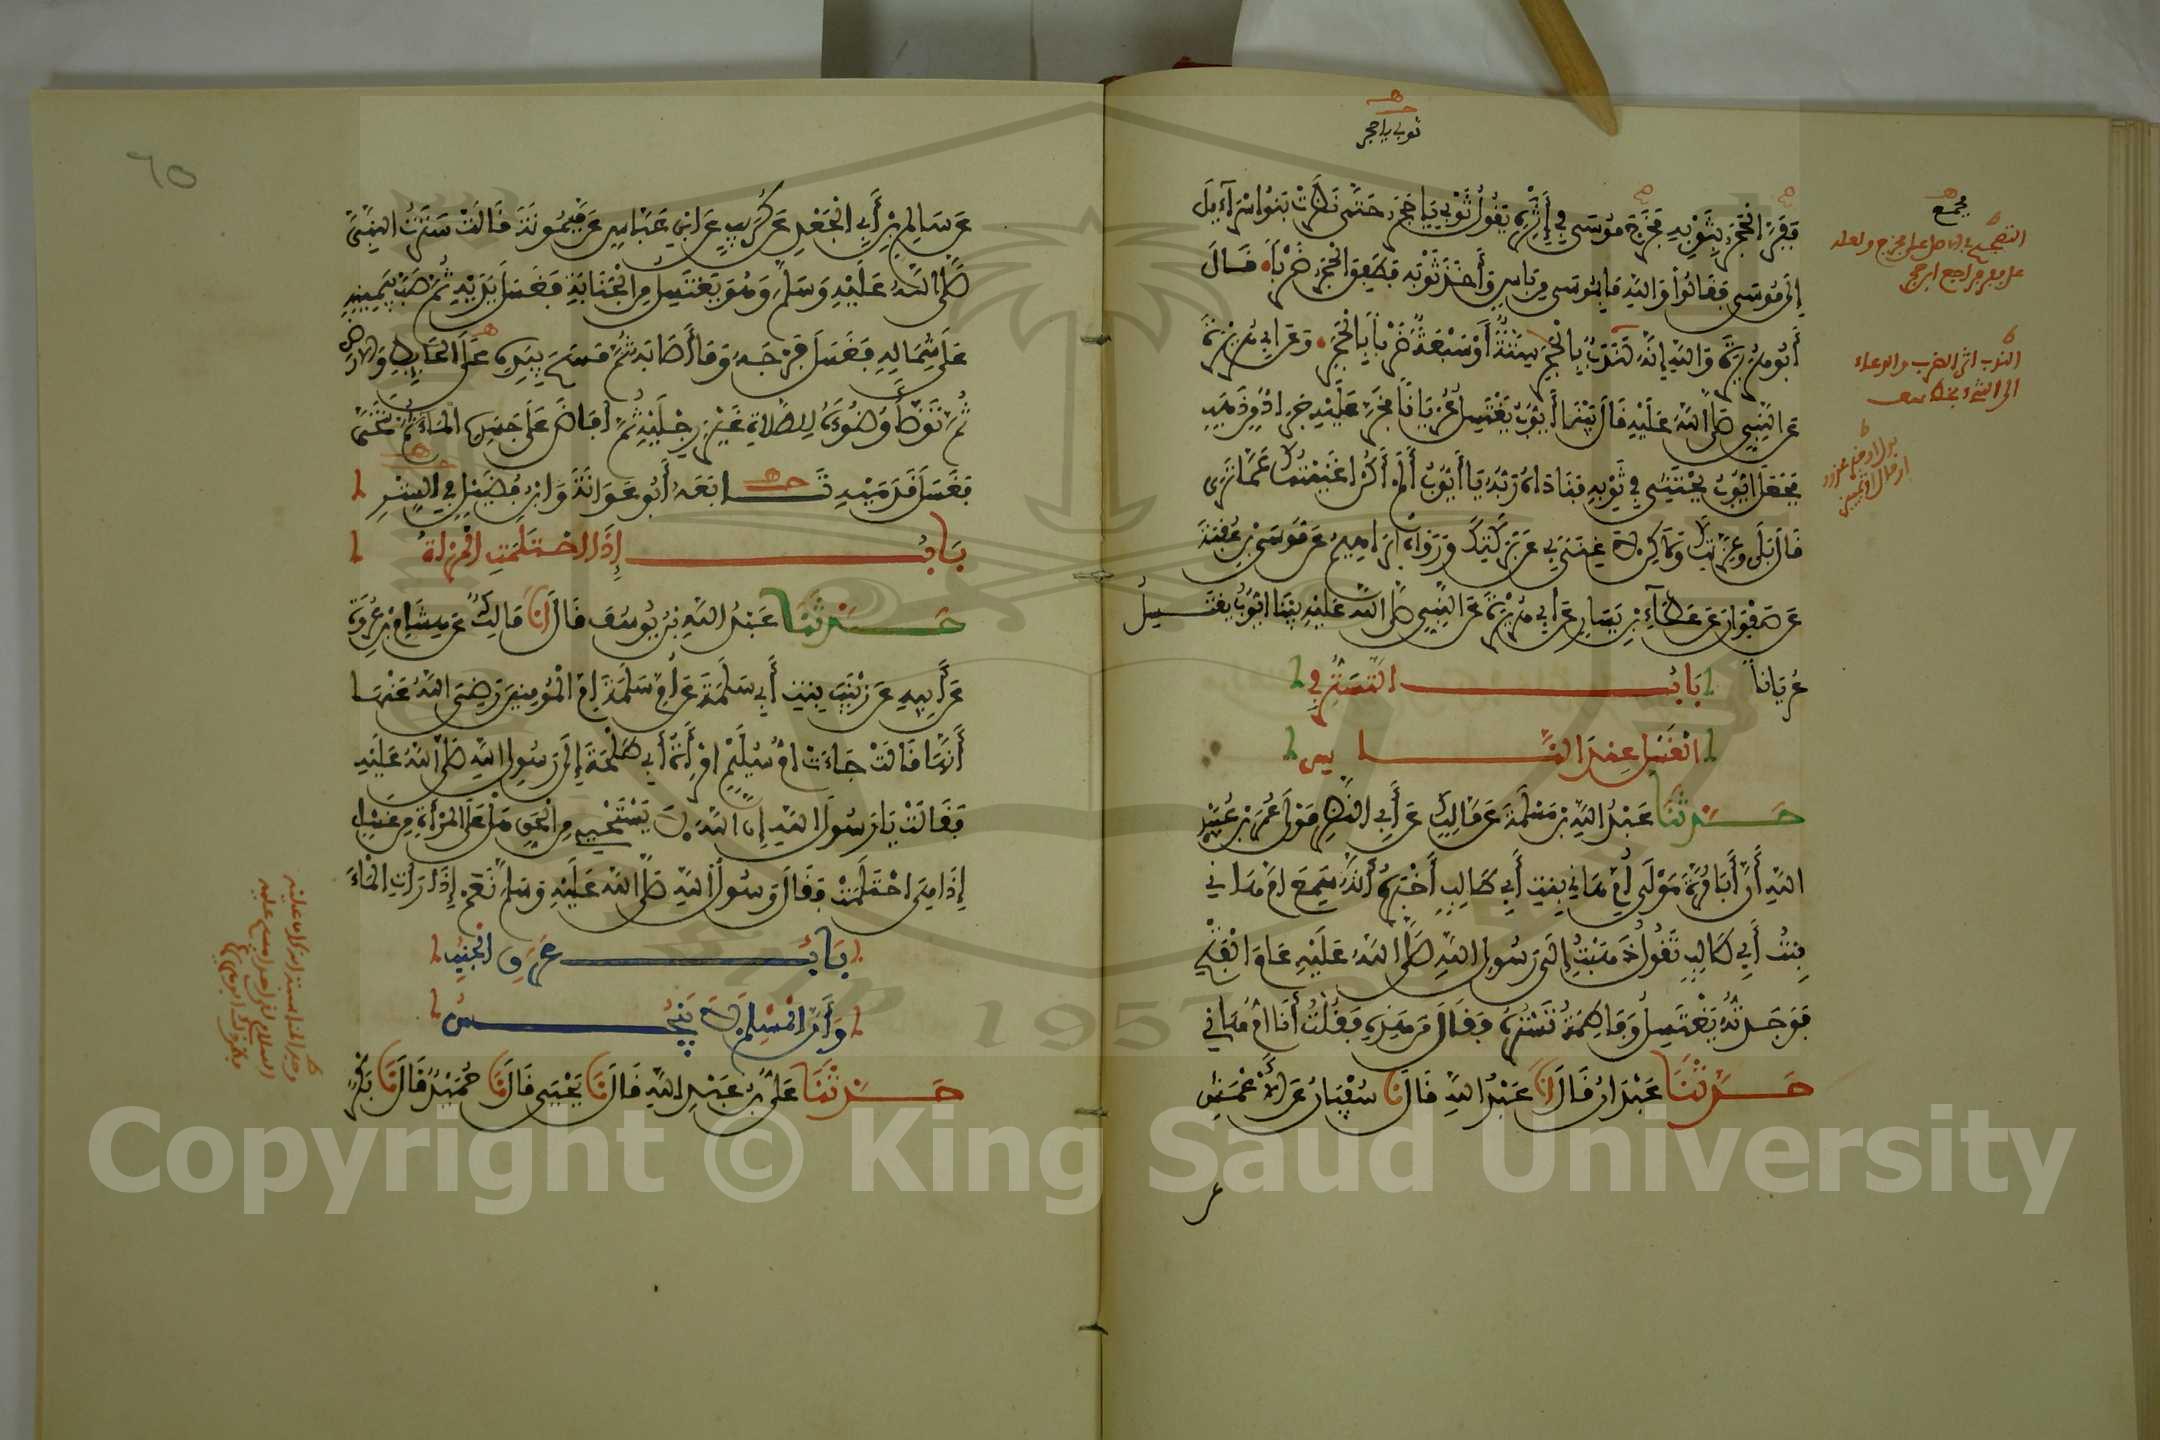 ثوبي يا حجر
ففر الحجر بثوبه فخرج موسى في إثره يقول ثوبي يا حجر حتى نظرت بنوا إسرآءيل
إلى موسى فقالوا والله ما بموسى من باس وأخذ ثوبه فطفق الحجر ضربا قال
أبو هريرة والله إنه لندب بالحجر ستة أو سبعة ضربا بالحجر وعن أبي هريرة
عن النبي صلى الله عليه قال بينما أيوب يغتسل عريانا فخر عليه جراد من ذهب
فجعل أيوب يحتثي في ثوبه فناداه ربه يا أيوب ألم أكن أغنيتك عما ترى
قال بلى وعزتك ولكن لا غنى بي عن بركتك ورواه إبراهيم عن موسى بن عقبة
عن صفوان عن عطاء بن يسار عن أبي هريرة عن النبي صلى الله عليه بينا أيوب يغتسل
عريانا باب التستر في
الغسل عند الناس
حدثنا عبد الله بن مسلمة عن مالك عن أبي النضر مولى عمر بن عبيد
الله أن أبا مرة مولى أم هاني بنت أبي طالب أخبره أنه سمع أم هاني
بنت أبي طالب تقول ذهبت إلى رسول الله صلى الله عليه عام الفتح
فوجدته يغتسل وفاطمة تستره فقال من هذه فقلت أنا أم هاني
حدثنا عبدان قال أنا عبد الله قال نا سفيان عن الأعمش
عن
مجمع
الندب اثر الضرب
٦٥
عن سالم بن أبي الجعد عن كريب عن ابن عباس عن ميمونة قالت سترت النبي
صلى الله عليه وسلم وهو يغتسل من الجنابة فغسل يديه ثم صب بيمينه
على شماله فغسل فرجه وما أصابه ثم مسح بيده على الحائط والارض
ثم توضأ وضوءه للصلاة غير رجليه ثم أفاض على جسده الماء ثم تنحى
فغسل قدميه تابعه أبو عوانة وابن فضيل في الستر
باب إذا احتلمت المرأة
حدثنا عبد الله بن يوسف قال أنا مالك عن هشام بن عروة
عن أبيه عن زينب بنت أبي سلمة عن أم سلمة أم المؤمنين رضي الله عنها
أنها قالت جاءت أم سليم امرأة أبي طلحة إلى رسول الله صلى الله عليه
فقالت يا رسول الله إن الله لا يستحيي من الحق هل على المرأة من غسل
إذا هي احتلمت فقال رسول الله صلى الله عليه وسلم نعم إذا رأت الماء
باب عرق الجنب
وأن المسلم لا ينجس
حدثنا علي بن عبد الله قال نا يحيى قال نا حميد قال نا بكر